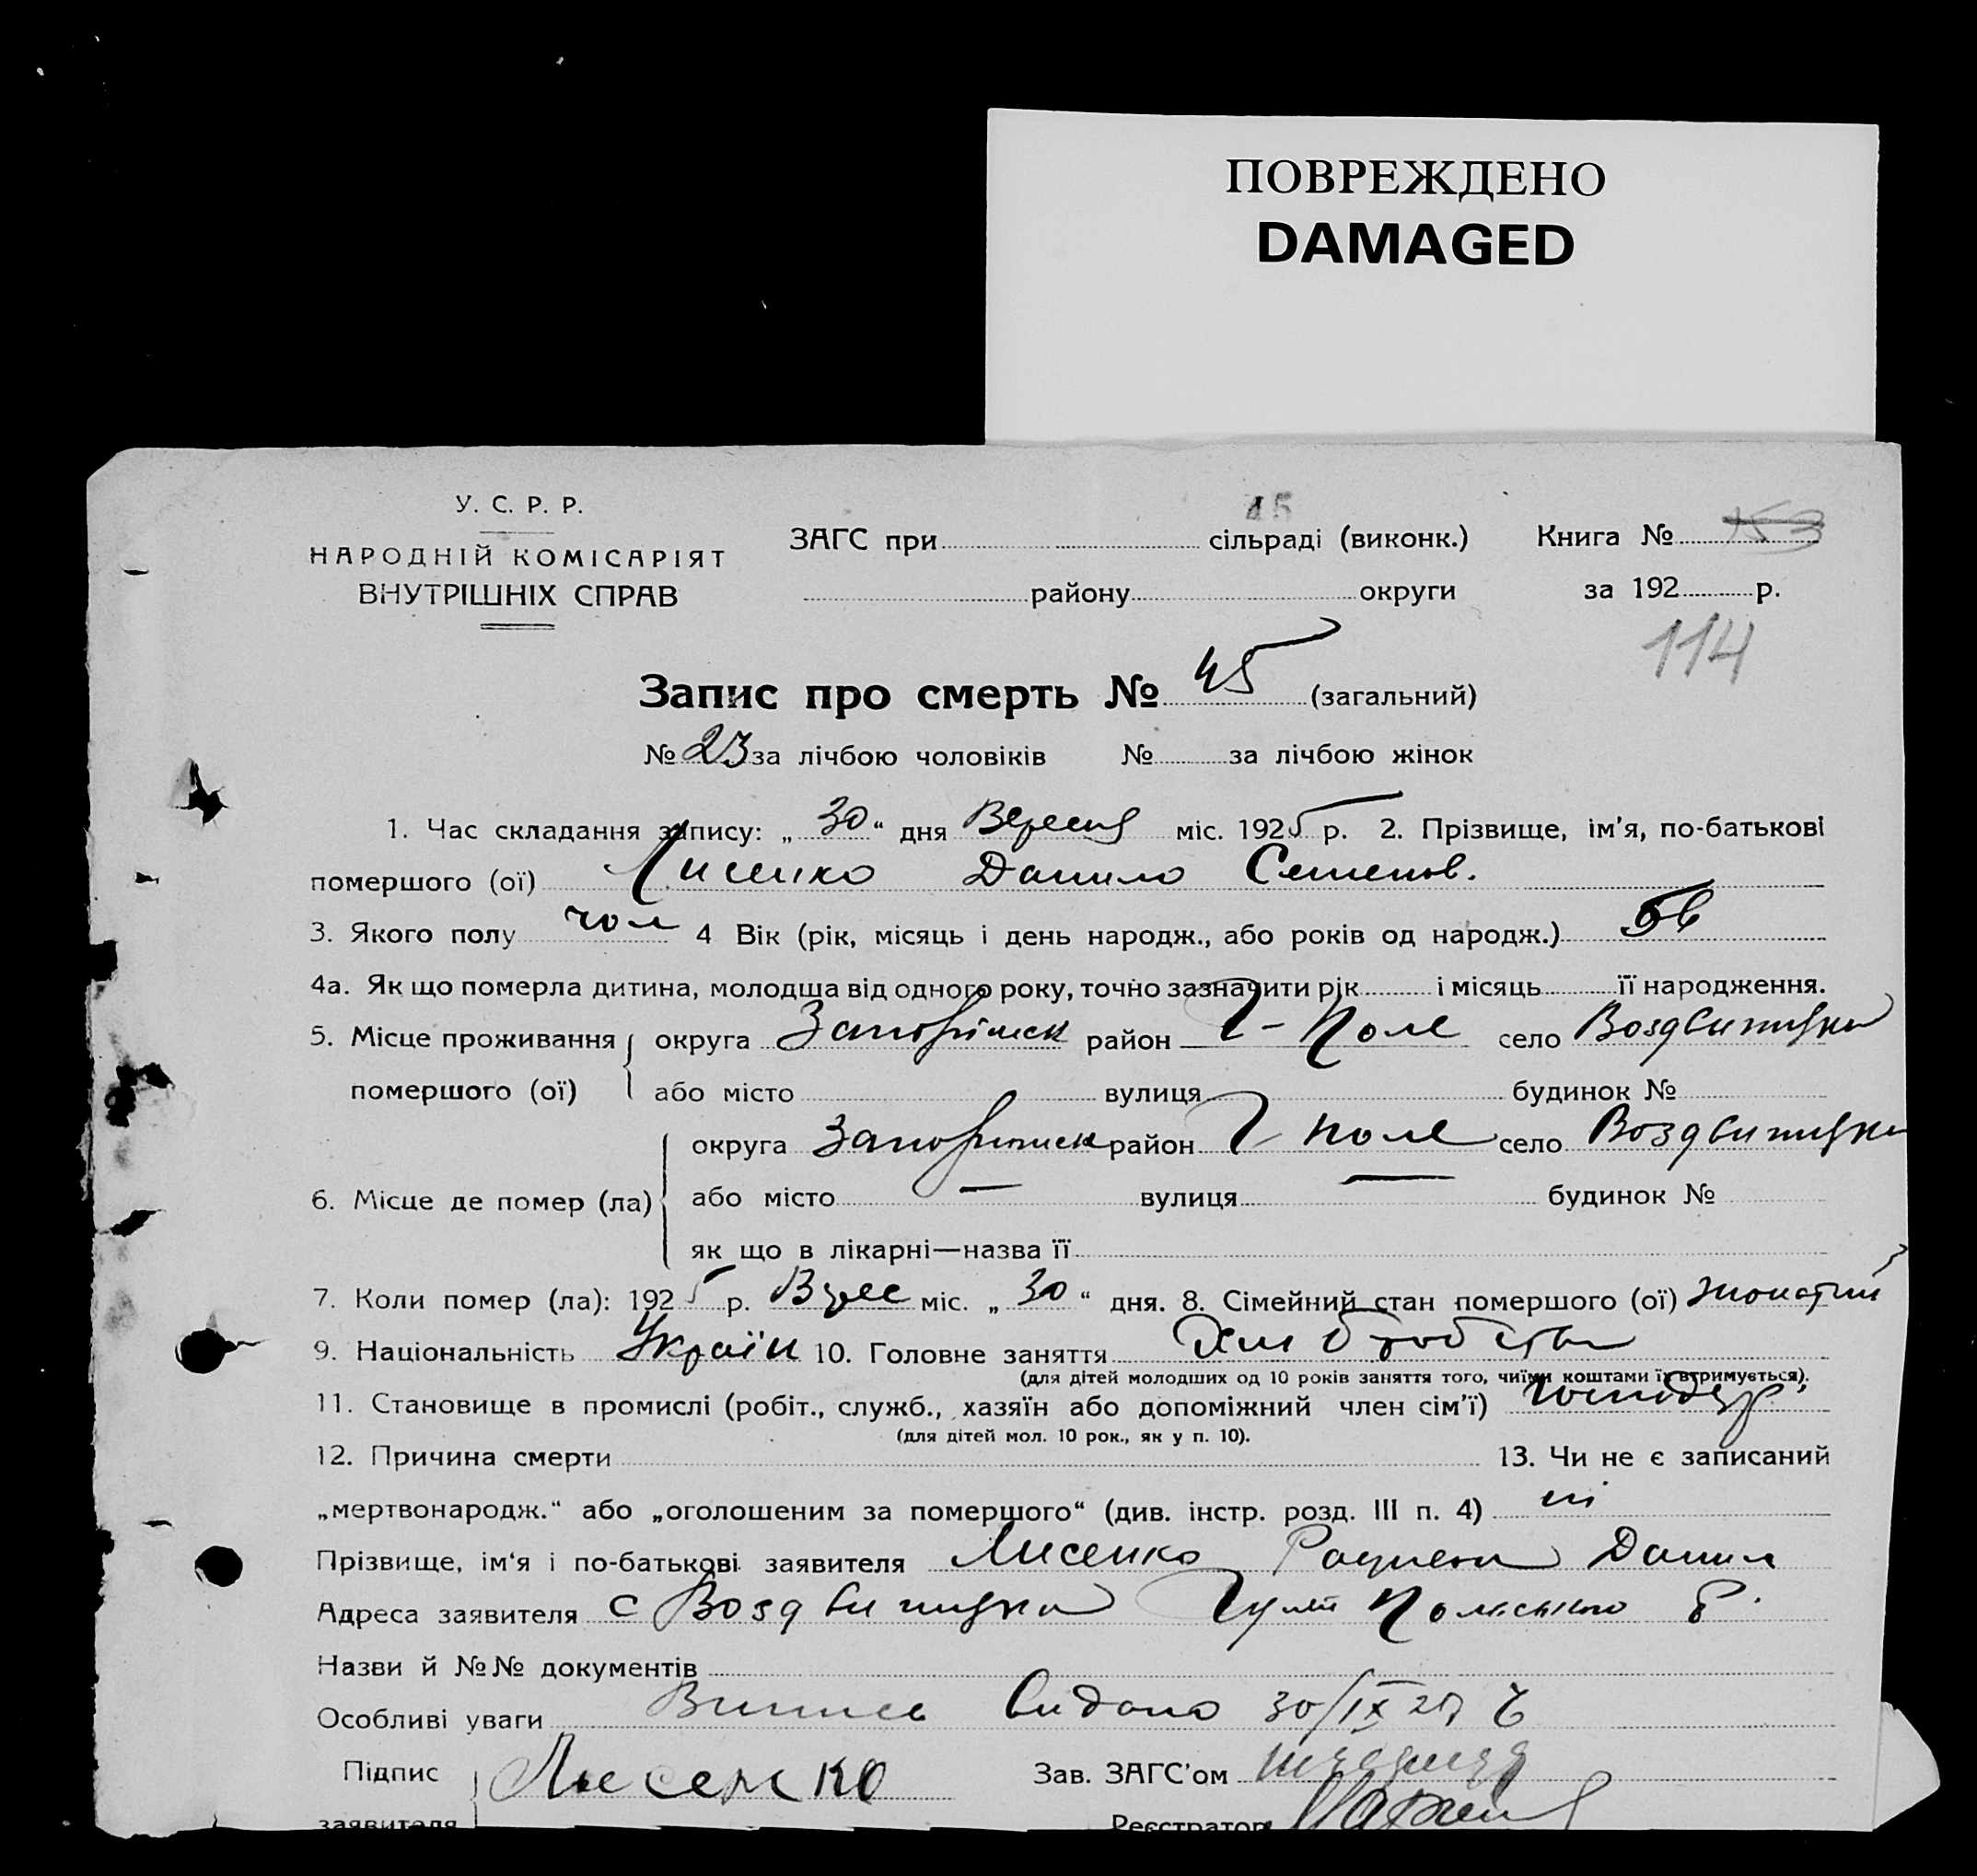 ПОВРЕЖДЕНО
DAMAGED
У. С. Р. Р.
НАРОДНІЙ КОМІСАРІЯТ
ВНУТРІШНІХ СПРАВ
45
ЗАГС при сільраді (виконк.)
району округи
Книга № 153
за 192 р.
114
Запис про смерть № 45 (загальний)
№ 23 за лічбою чоловіків № за лічбою жінок
1. Час складання запису: „ 30 “ дня Вересня міс. 1925 р. 2. Прізвище, ім'я, по-батькові
помершого (ої) Лисенко Данило Семенов.
3. Якого полу чол 4 Вік (рік, місяць і день народж., або років од народж.) 56
4а. Як що померла дитина, молодша від одного року, точно зазначити рік і місяць її народження.
5. Місце проживання помершого (ої) округа Запоріжск район Г-Поле село Воздвижувка
або місто вулиця будинок №
6. Місце де помер (ла) округа Запоріжск район Г-Поле село Воздвижувка
або місто — вулиця — будинок №
як що в лікарні—назва її
7. Коли помер (ла): 1925 р. Верес міс. „ 30 “ дня. 8. Сімейний стан помершого (ої) жонатий
9. Національність Україн 10. Головне заняття
(для дітей молодших од 10 років заняття того, чиїми коштами їх втримується).
11. Становище в промислі (робіт., служб., хазяїн або допоміжний член сім'ї) господар
(для дітей мол. 10 рок., як у п. 10).
12. Причина смерти 13. Чи не є записаний
„мертвонародж.“ або „оголошеним за помершого“ (див. інстр. розд. III п. 4) ні
Прізвище, ім'я і по-батькові заявителя Лисенко Данил
Адреса заявителя с Воздвижувка Гуляй Польського р.
Назви й №№ документів
Особливі уваги Випис видано 30/IX 25
Підпис заявителя Лисенко
Зав. ЗАГС'ом
Реєстратор